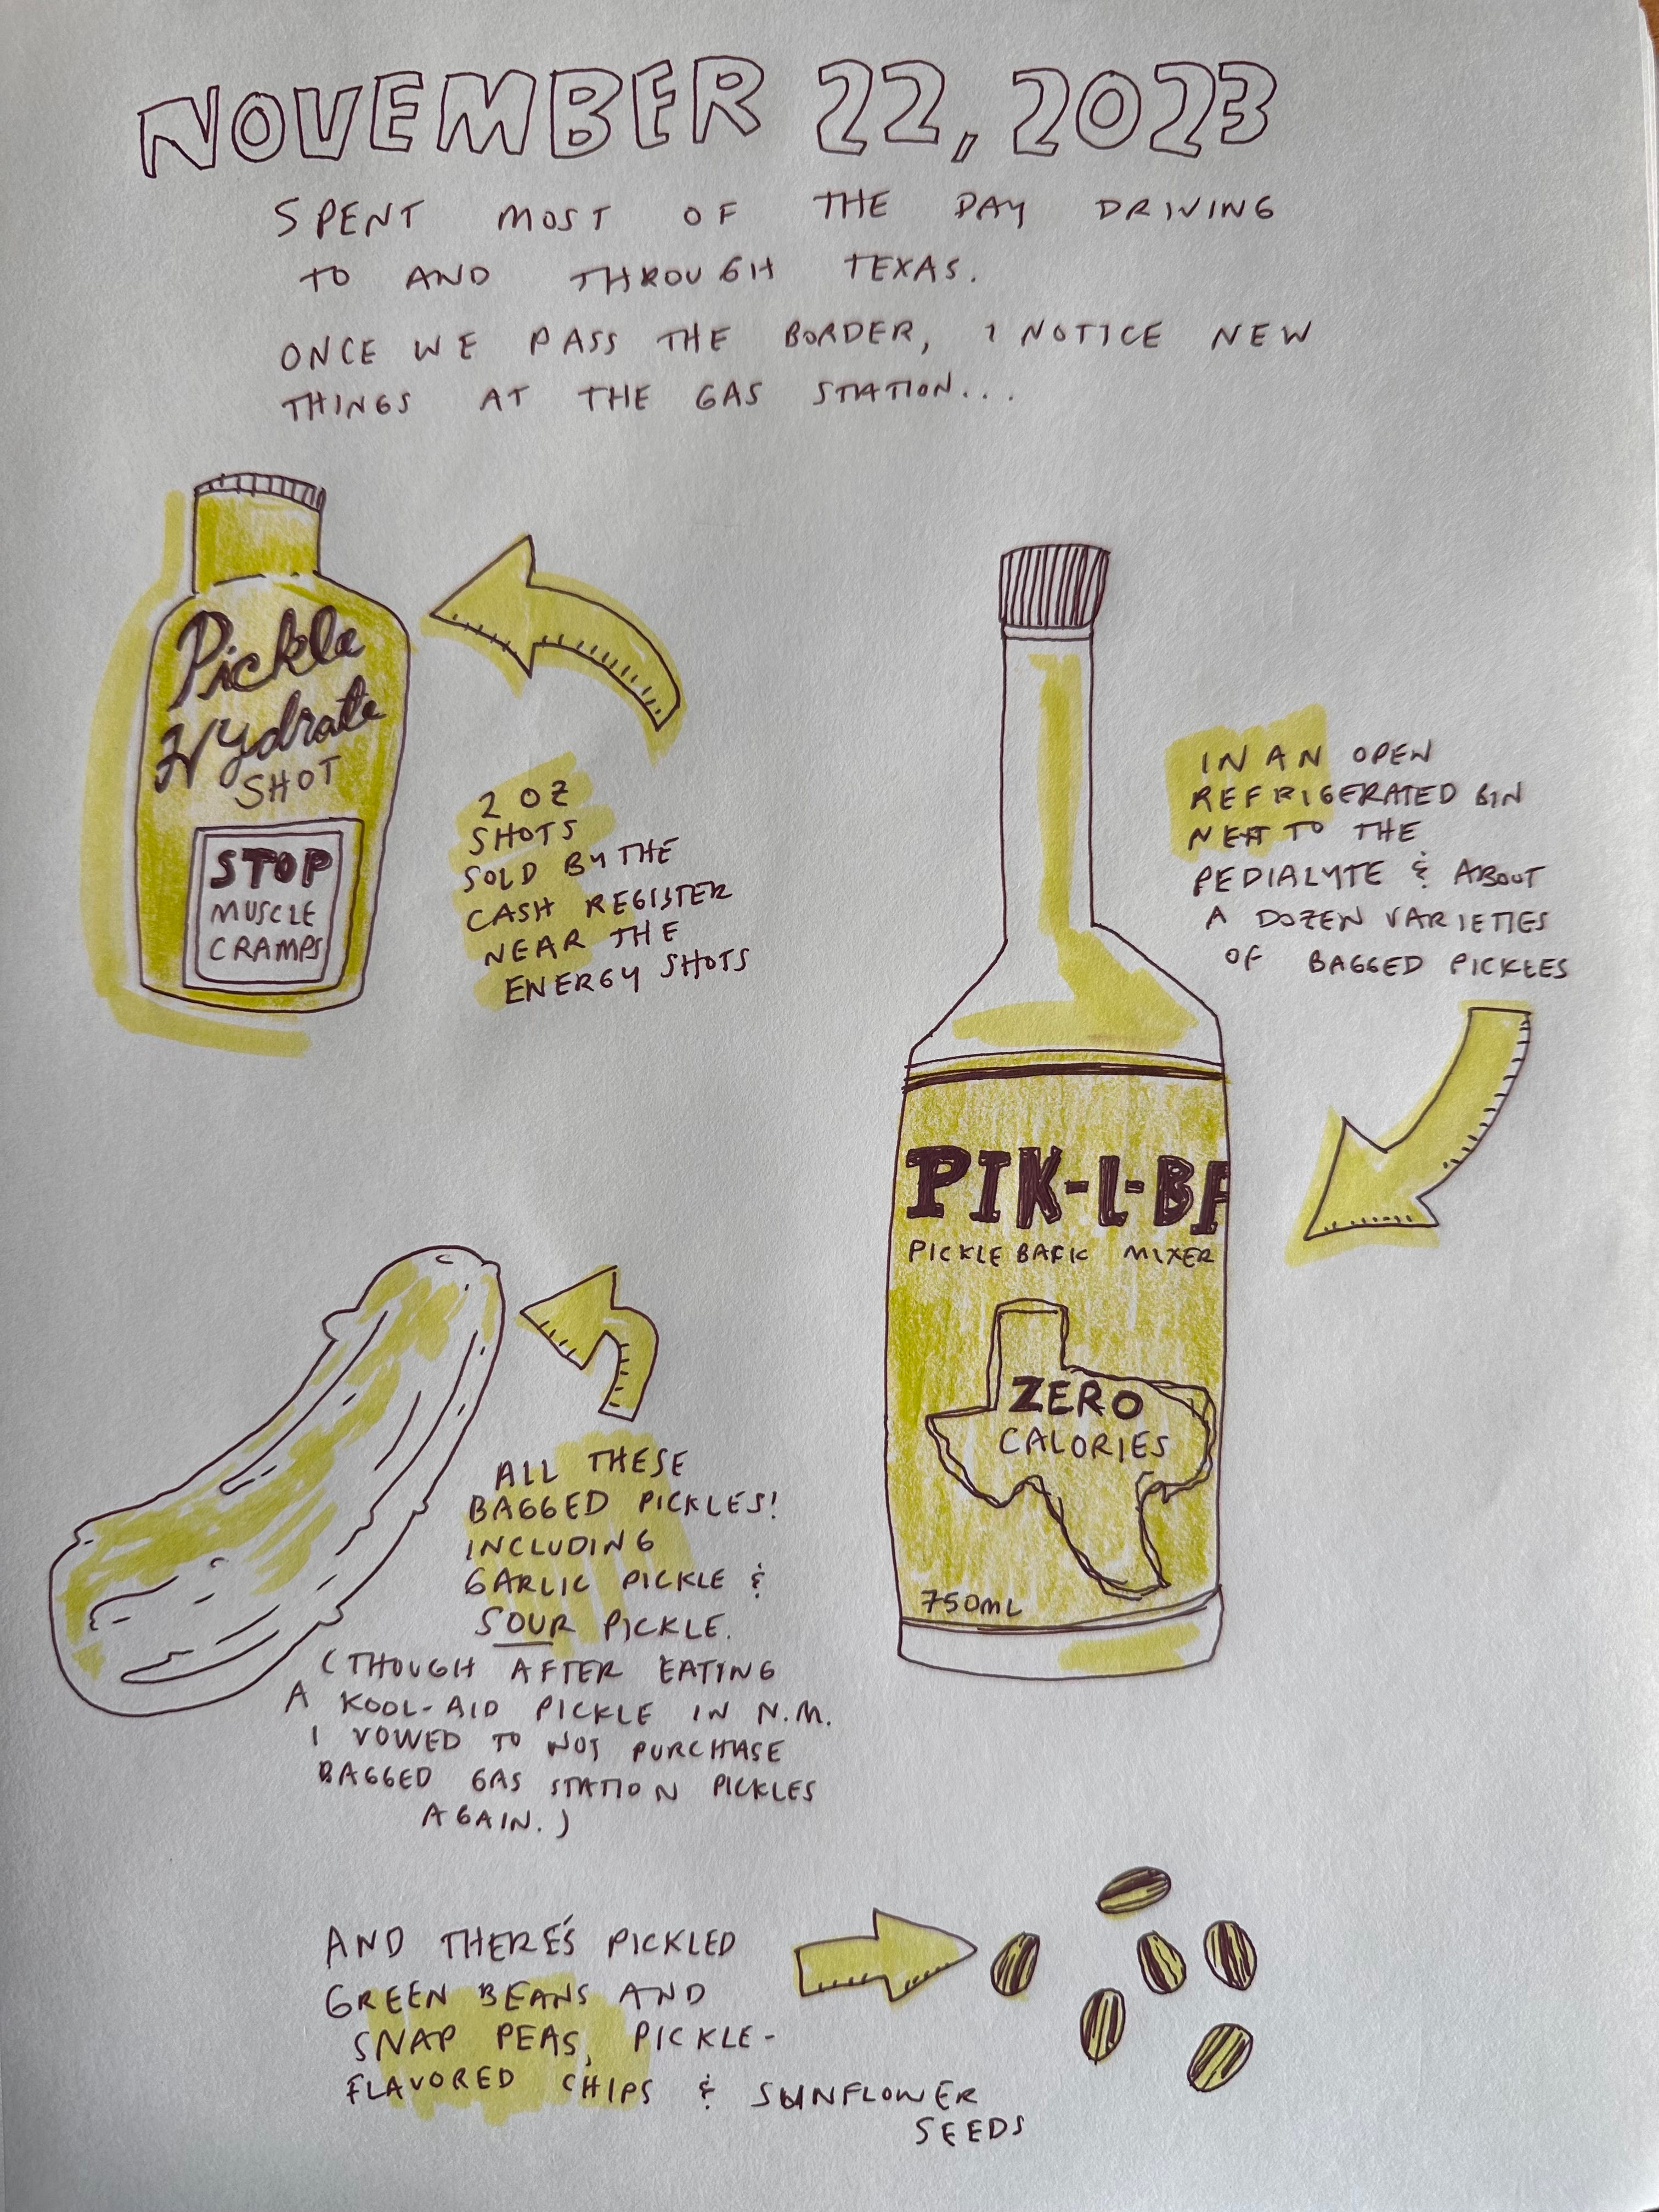 NOVEMBER 22, 2023
SPENT MOST OF THE DAY DRIVING
TO AND THROUGH TEXAS.
ONCE WE PASS THE BORDER, I NOTICE NEW
THINGS AT THE GAS STATION...
Pickle
Hydrate
SHOT
STOP
MUSCLE
CRAMPS
2 OZ
SHOTS
SOLD BY THE
CASH REGISTER
NEAR THE
ENERGY SHOTS
IN AN OPEN
REFRIGERATED BIN
NEXT TO THE
PEDIALYTE & ABOUT
A DOZEN VARIETIES
OF BAGGED PICKLES
PIK-L-BA
PICKLE BACK MIXER
ZERO
CALORIES
750ML
ALL THESE
BAGGED PICKLES!
INCLUDING
GARLIC PICKLE &
SOUR PICKLE.
(THOUGH AFTER EATING
A KOOL-AID PICKLE IN N.M.
I VOWED TO NOT PURCHASE
BAGGED GAS STATION PICKLES
AGAIN.)
AND THERE'S PICKLED
GREEN BEANS AND
SNAP PEAS, PICKLE-
FLAVORED CHIPS & SUNFLOWER
SEEDS